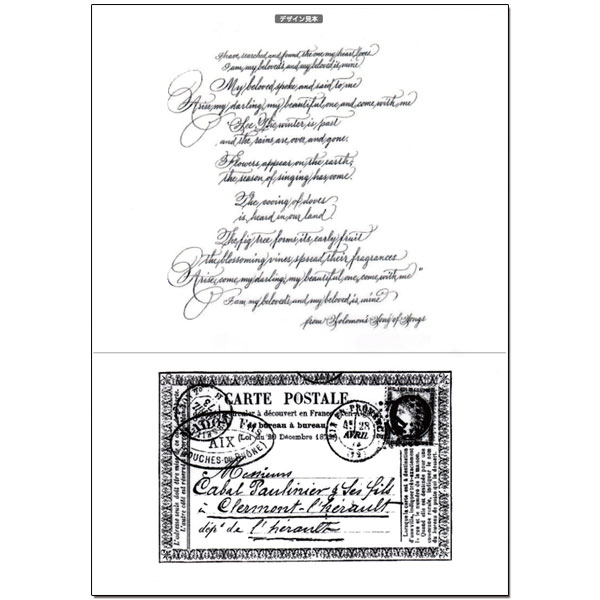 デザイン見本
I have searched and found the one my heart loves
I am my beloved's, and my beloved is mine
My beloved spoke and said to me
Arise, my darling, my beautiful one, and come with me
See, The winter is past
and the rains are over and gone.
Flowers appear on the earth;
the season of singing has come.
The cooing of doves
is heard in our land.
The fig tree forms its early fruit
the blossoming vines spread their fragrances
Arise, come my darling, my beautiful one, come with me"
I am my beloved's and my beloved is mine
from Solomon's Song of Songs
CARTE POSTALE
circuler à découvert en France
de bureau à bureau
(Loi du 20 Décembre 1872)
AIX
BOUCHES-DU-RHÔNE
AIX EN PROVENCE
28
AVRIL
Messieurs
Cabal Paulinier & Ses fils
à Clermont-l'hérault
dépt de l'hérault